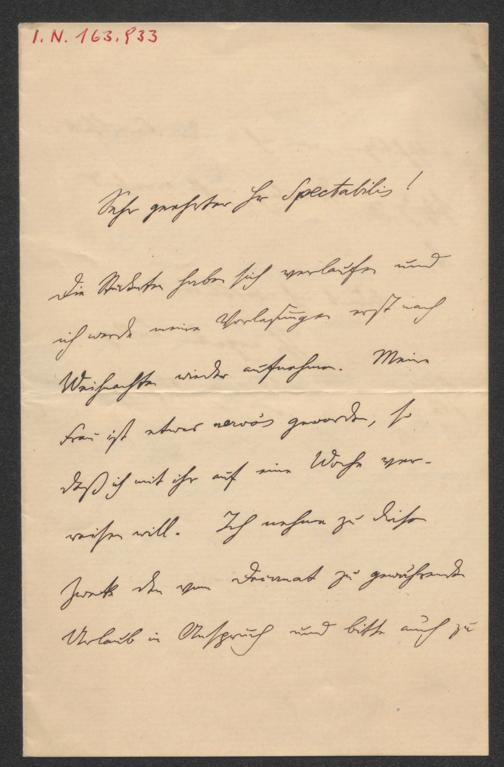 I.N. 163.933
Sehr geehrter Hr Spectabilis!
Die Studenten haben sich verlaufen und
ich werde meine Vorlesungen erst nach
Weihnachten wieder aufnehmen. Meine
Frau ist etwas nervös geworden, so
daß ich mit ihr auf eine Woche ver-
reisen will. Ich nehme zu diesem
Zweck den vom Decanat zu gewährenden
Urlaub in Anspruch und bitte auch zu